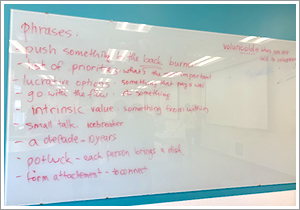 Phrases:
- push something to the back burner
- list of priorities: what's the most important
- lucrative options: something that pays well
- go with the flow:
intrinsic value - something from within
- small talk - icebreaker
- a decade - 10 years
- potluck - each person brings a dish
- form attachement - to connect